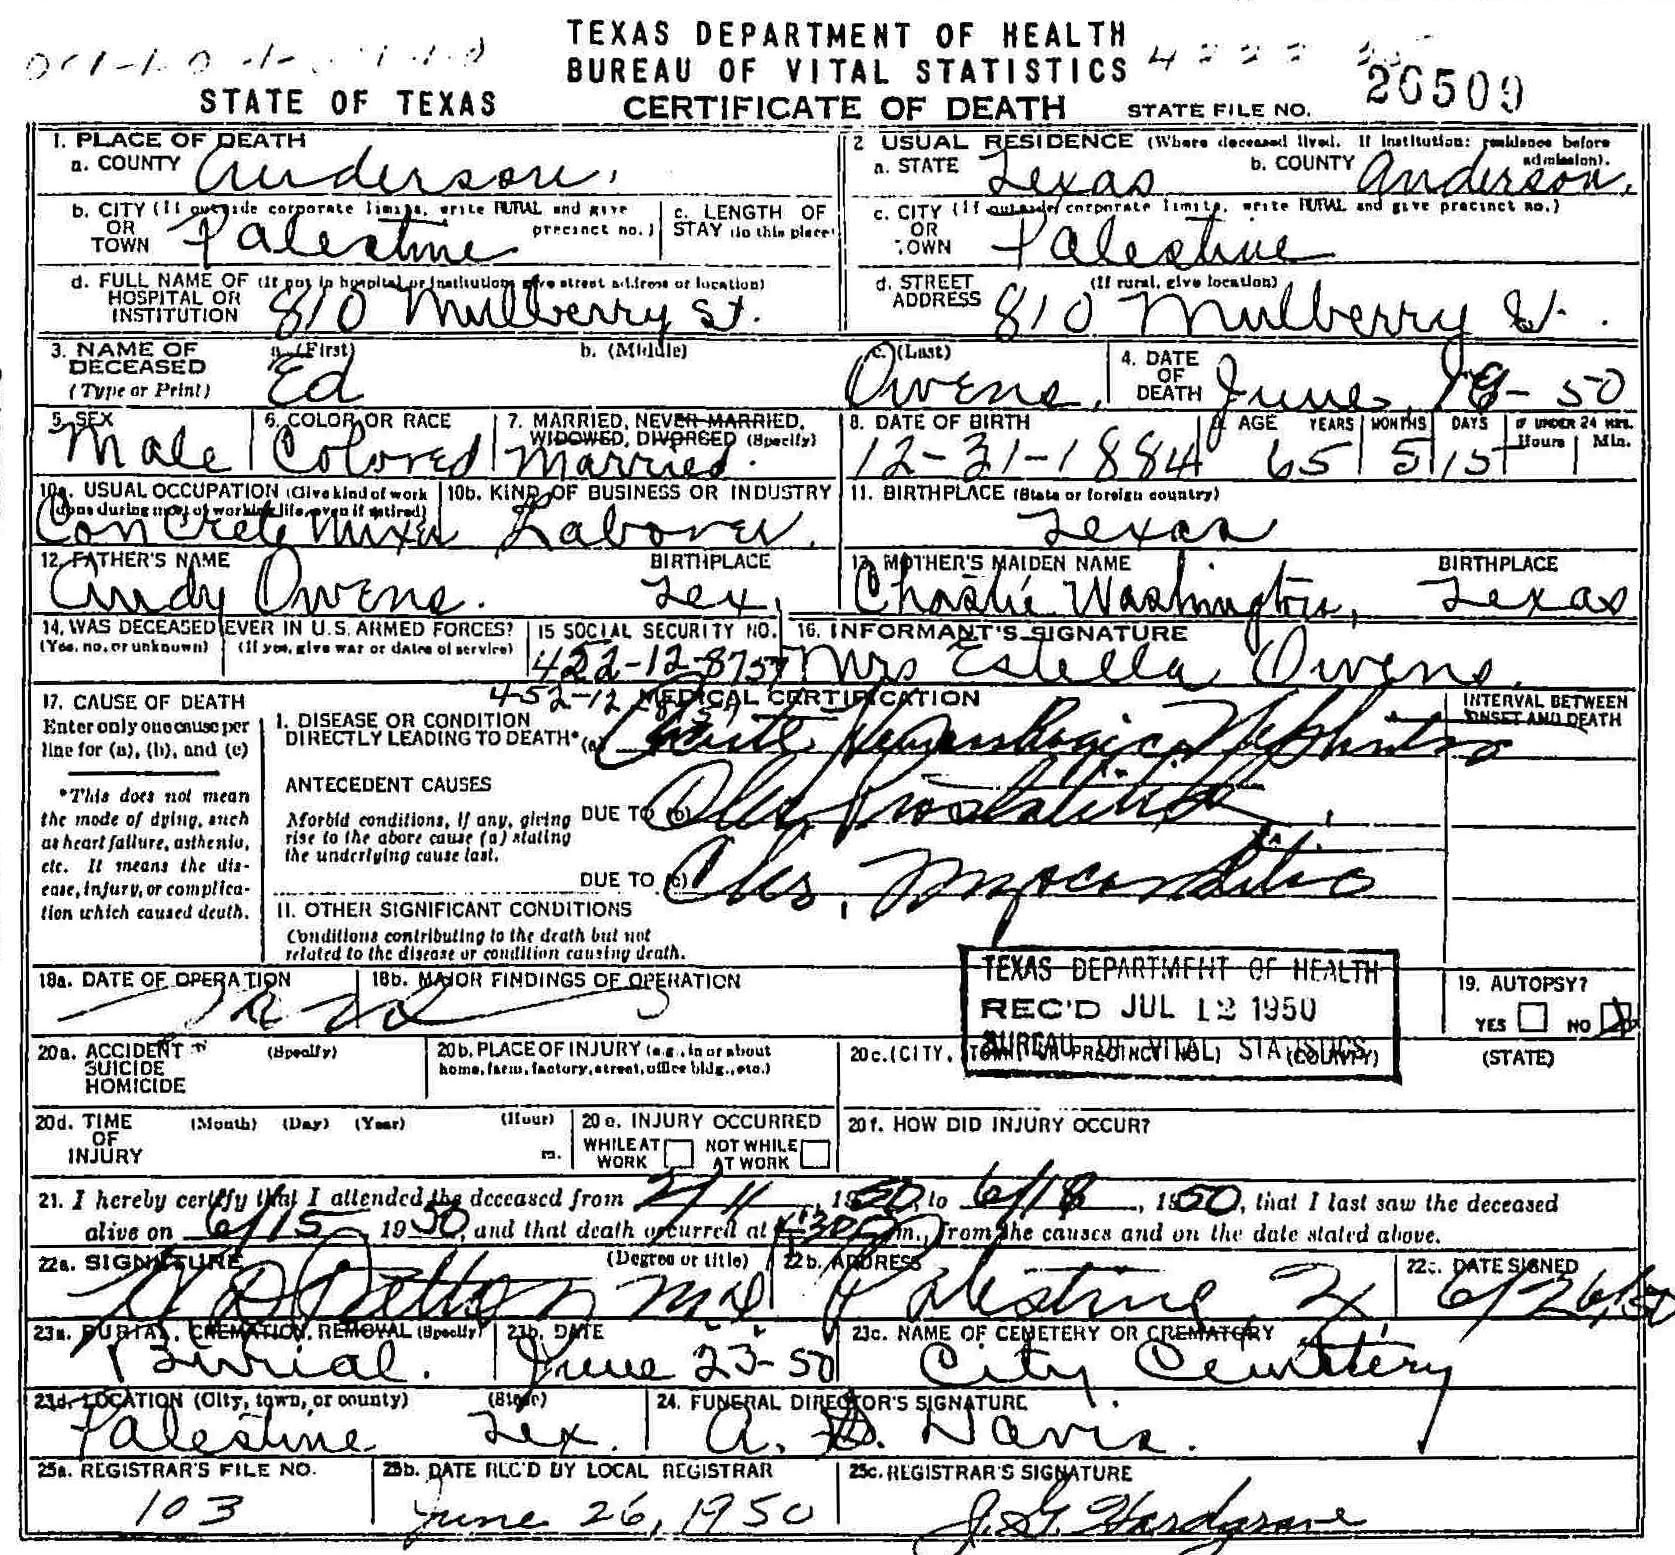 TEXAS DEPARTMENT OF HEALTH
BUREAU OF VITAL STATISTICS
STATE OF TEXAS CERTIFICATE OF DEATH STATE FILE NO. 26509
1. PLACE OF DEATH
a. COUNTY Anderson.
2 USUAL RESIDENCE (Where deceased lived. If institution: residence before admission).
a. STATE Texas b. COUNTY Anderson.
b. CITY (If outside corporate limits, write RURAL and give precinct no.) OR TOWN Palestine
c. LENGTH OF STAY (in this place)
c. CITY (If outside corporate limits, write RURAL and give precinct no.) OR TOWN Palestine
d. FULL NAME OF (If not in hospital or institution, give street address or location) HOSPITAL OR INSTITUTION 810 Mulberry St.
d. STREET ADDRESS (If rural, give location) 810 Mulberry St.
3. NAME OF DECEASED (Type or Print)
a. (First) Ed b. (Middle) c. (Last) Owens.
4. DATE OF DEATH June, 18-50
5. SEX Male
6. COLOR OR RACE Colored
7. MARRIED, NEVER MARRIED, WIDOWED, DIVORCED (Specify) Married.
8. DATE OF BIRTH 12-31-1884
9. AGE YEARS 65 MONTHS 5 DAYS 15 IF UNDER 24 HRS. Hours Min.
10a. USUAL OCCUPATION (Give kind of work done during most of working life, even if retired) Concrete Mixer
10b. KIND OF BUSINESS OR INDUSTRY Laborer.
11. BIRTHPLACE (State or foreign country) Texas
12. FATHER'S NAME Andy Owens. BIRTHPLACE Tex.
13. MOTHER'S MAIDEN NAME Washington, BIRTHPLACE Texas
14. WAS DECEASED EVER IN U.S. ARMED FORCES?
(Yes, no, or unknown) (If yes, give war or dates of service)
15 SOCIAL SECURITY NO. 452-12-8757
452-12
16. INFORMANT'S SIGNATURE Mrs Estella Owens.
17. CAUSE OF DEATH
Enter only one cause per line for (a), (b), and (c)
*This does not mean the mode of dying, such as heart failure, asthenia, etc. It means the disease, injury, or complication which caused death.
MEDICAL CERTIFICATION
INTERVAL BETWEEN ONSET AND DEATH
I. DISEASE OR CONDITION DIRECTLY LEADING TO DEATH* (a) Hemorrhagic Nephritis
ANTECEDENT CAUSES
Morbid conditions, if any, giving rise to the above cause (a) stating the underlying cause last.
DUE TO (b) Chr Prostatitis
DUE TO (c) Chr. Myocarditis
II. OTHER SIGNIFICANT CONDITIONS
Conditions contributing to the death but not related to the disease or condition causing death.
TEXAS DEPARTMENT OF HEALTH
REC'D JUL 12 1950
BUREAU OF VITAL STATISTICS
18a. DATE OF OPERATION
18b. MAJOR FINDINGS OF OPERATION
19. AUTOPSY?
YES NO
20a. ACCIDENT SUICIDE HOMICIDE (Specify)
20b. PLACE OF INJURY (e.g., in or about home, farm, factory, street, office bldg., etc.)
20c. (CITY, TOWN, OR PRECINCT NO.) (COUNTY) (STATE)
20d. TIME OF INJURY (Month) (Day) (Year) (Hour) m.
20e. INJURY OCCURRED
WHILE AT WORK NOT WHILE AT WORK
20f. HOW DID INJURY OCCUR?
21. I hereby certify that I attended the deceased from 2/11, 1950, to 6/18, 1950, that I last saw the deceased
alive on 6/15, 1950, and that death occurred at 4:30 Pm., from the causes and on the date stated above.
22a. SIGNATURE (Degree or title) MD
22b. ADDRESS Palestine, Tx
22c. DATE SIGNED 6/26/50
23a. BURIAL, CREMATION, REMOVAL (Specify) Burial.
23b. DATE June 23-50
23c. NAME OF CEMETERY OR CREMATORY City Cemetery
23d. LOCATION (City, town, or county) (State) Palestine Tex.
24. FUNERAL DIRECTOR'S SIGNATURE A. D. Davis.
25a. REGISTRAR'S FILE NO. 103
25b. DATE REC'D BY LOCAL REGISTRAR June 26, 1950
25c. REGISTRAR'S SIGNATURE J. G. Hardgrave